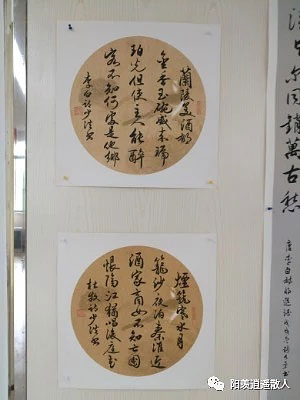 蘭陵美酒郁
金香玉碗盛來琥
珀光但使主人能醉
客不知何處是他鄉
李白詩少
煙籠寒水月
籠沙夜泊秦淮近
酒家商女不知亡國
恨隔江猶唱後庭花
杜牧詩少
同銷萬古愁
唐李白將進酒
阳羡逍遥散人